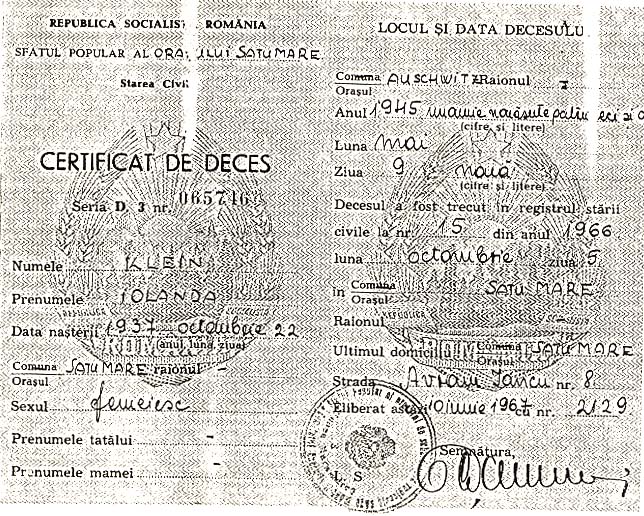 REPUBLICA SOCIALISTĂ ROMÂNIA
SFATUL POPULAR AL ORAȘULUI SATU MARE
Starea Civilă
CERTIFICAT DE DECES
Seria D. 3 nr. 065716
Numele KLEIN
Prenumele IOLANDA
Data nașterii 1937 octombrie 22
(anul, luna, ziua)
Comuna
Orașul SATU MARE raionul -
Sexul femeiesc
Prenumele tatălui -
Prenumele mamei -
LOCUL ȘI DATA DECESULUI
Comuna
Orașul AUSCHWITZ Raionul -
Anul 1945 unamie nouăsute patru zeci și
(cifre și litere)
Luna mai
Ziua 9 nouă
(cifre și litere)
Decesul a fost trecut în registrul stării
civile la nr. 15 din anul 1966
luna octombrie ziua 5
în Comuna
Orașul SATU MARE
Raionul
Ultimul domiciliu Comuna
Orașul SATU MARE
Strada Avram Iancu nr. 8
Eliberat astăzi 10 iunie 1967 cu nr. 2129
Semnătura,
L S